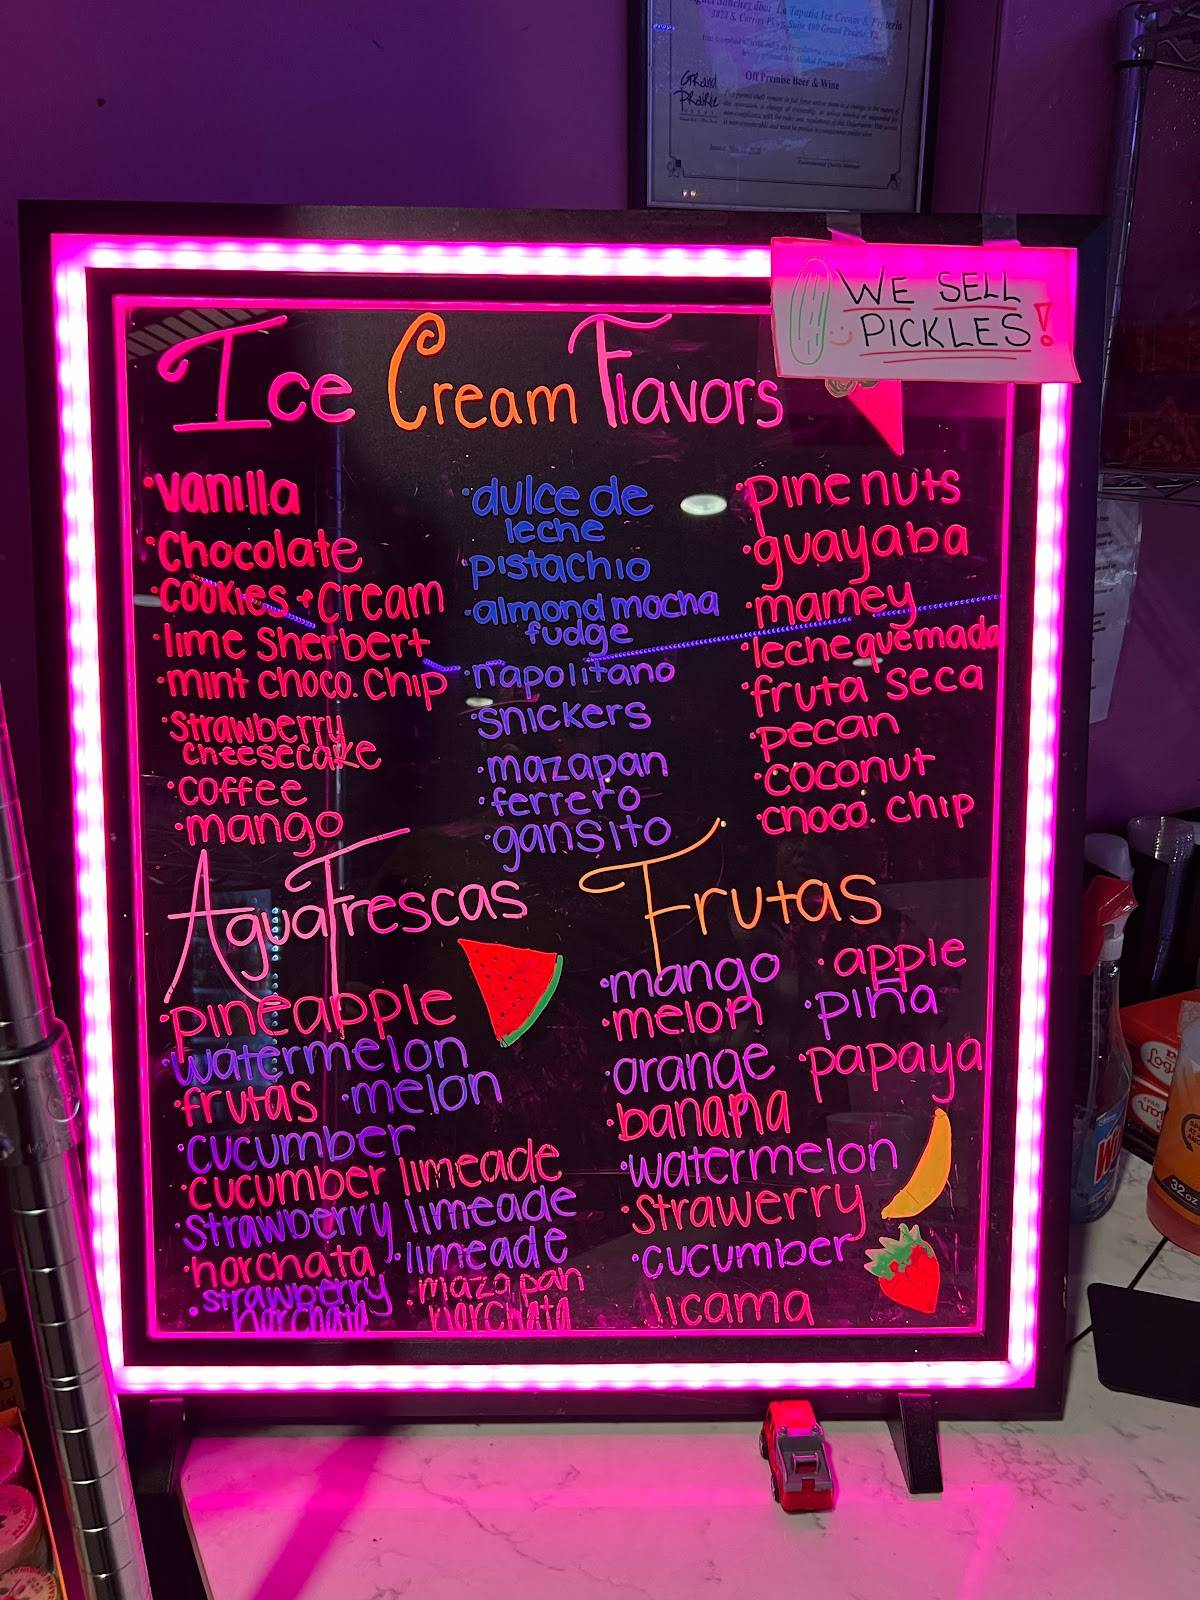 La Tapatia Ice Cream &
Off Premise Beer & Wine
Grand
Prairie
WE SELL
PICKLES!
Ice Cream Flavors
·vanilla
·Chocolate
·cookies + cream
·lime sherbert
·mint choco. chip
·strawberry
cheesecake
·coffee
·mango
·dulce de
leche
·pistachio
·almond mocha
fudge
·napolitano
·snickers
·mazapan
·ferrero
·gansito
·pine nuts
·guayaba
·mamey
·leche quemada
·fruta seca
·pecan
·coconut
·choco. chip
Agua Frescas
·pineapple
·watermelon
·frutas ·melon
·cucumber
·cucumber limeade
·strawberry limeade
·horchata ·limeade
·strawberry
horchata
·mazapan
horchata
Frutas
·mango ·apple
·melon ·piña
·orange ·papaya
·banana
·watermelon
·strawerry
·cucumber
Jicama
32oz